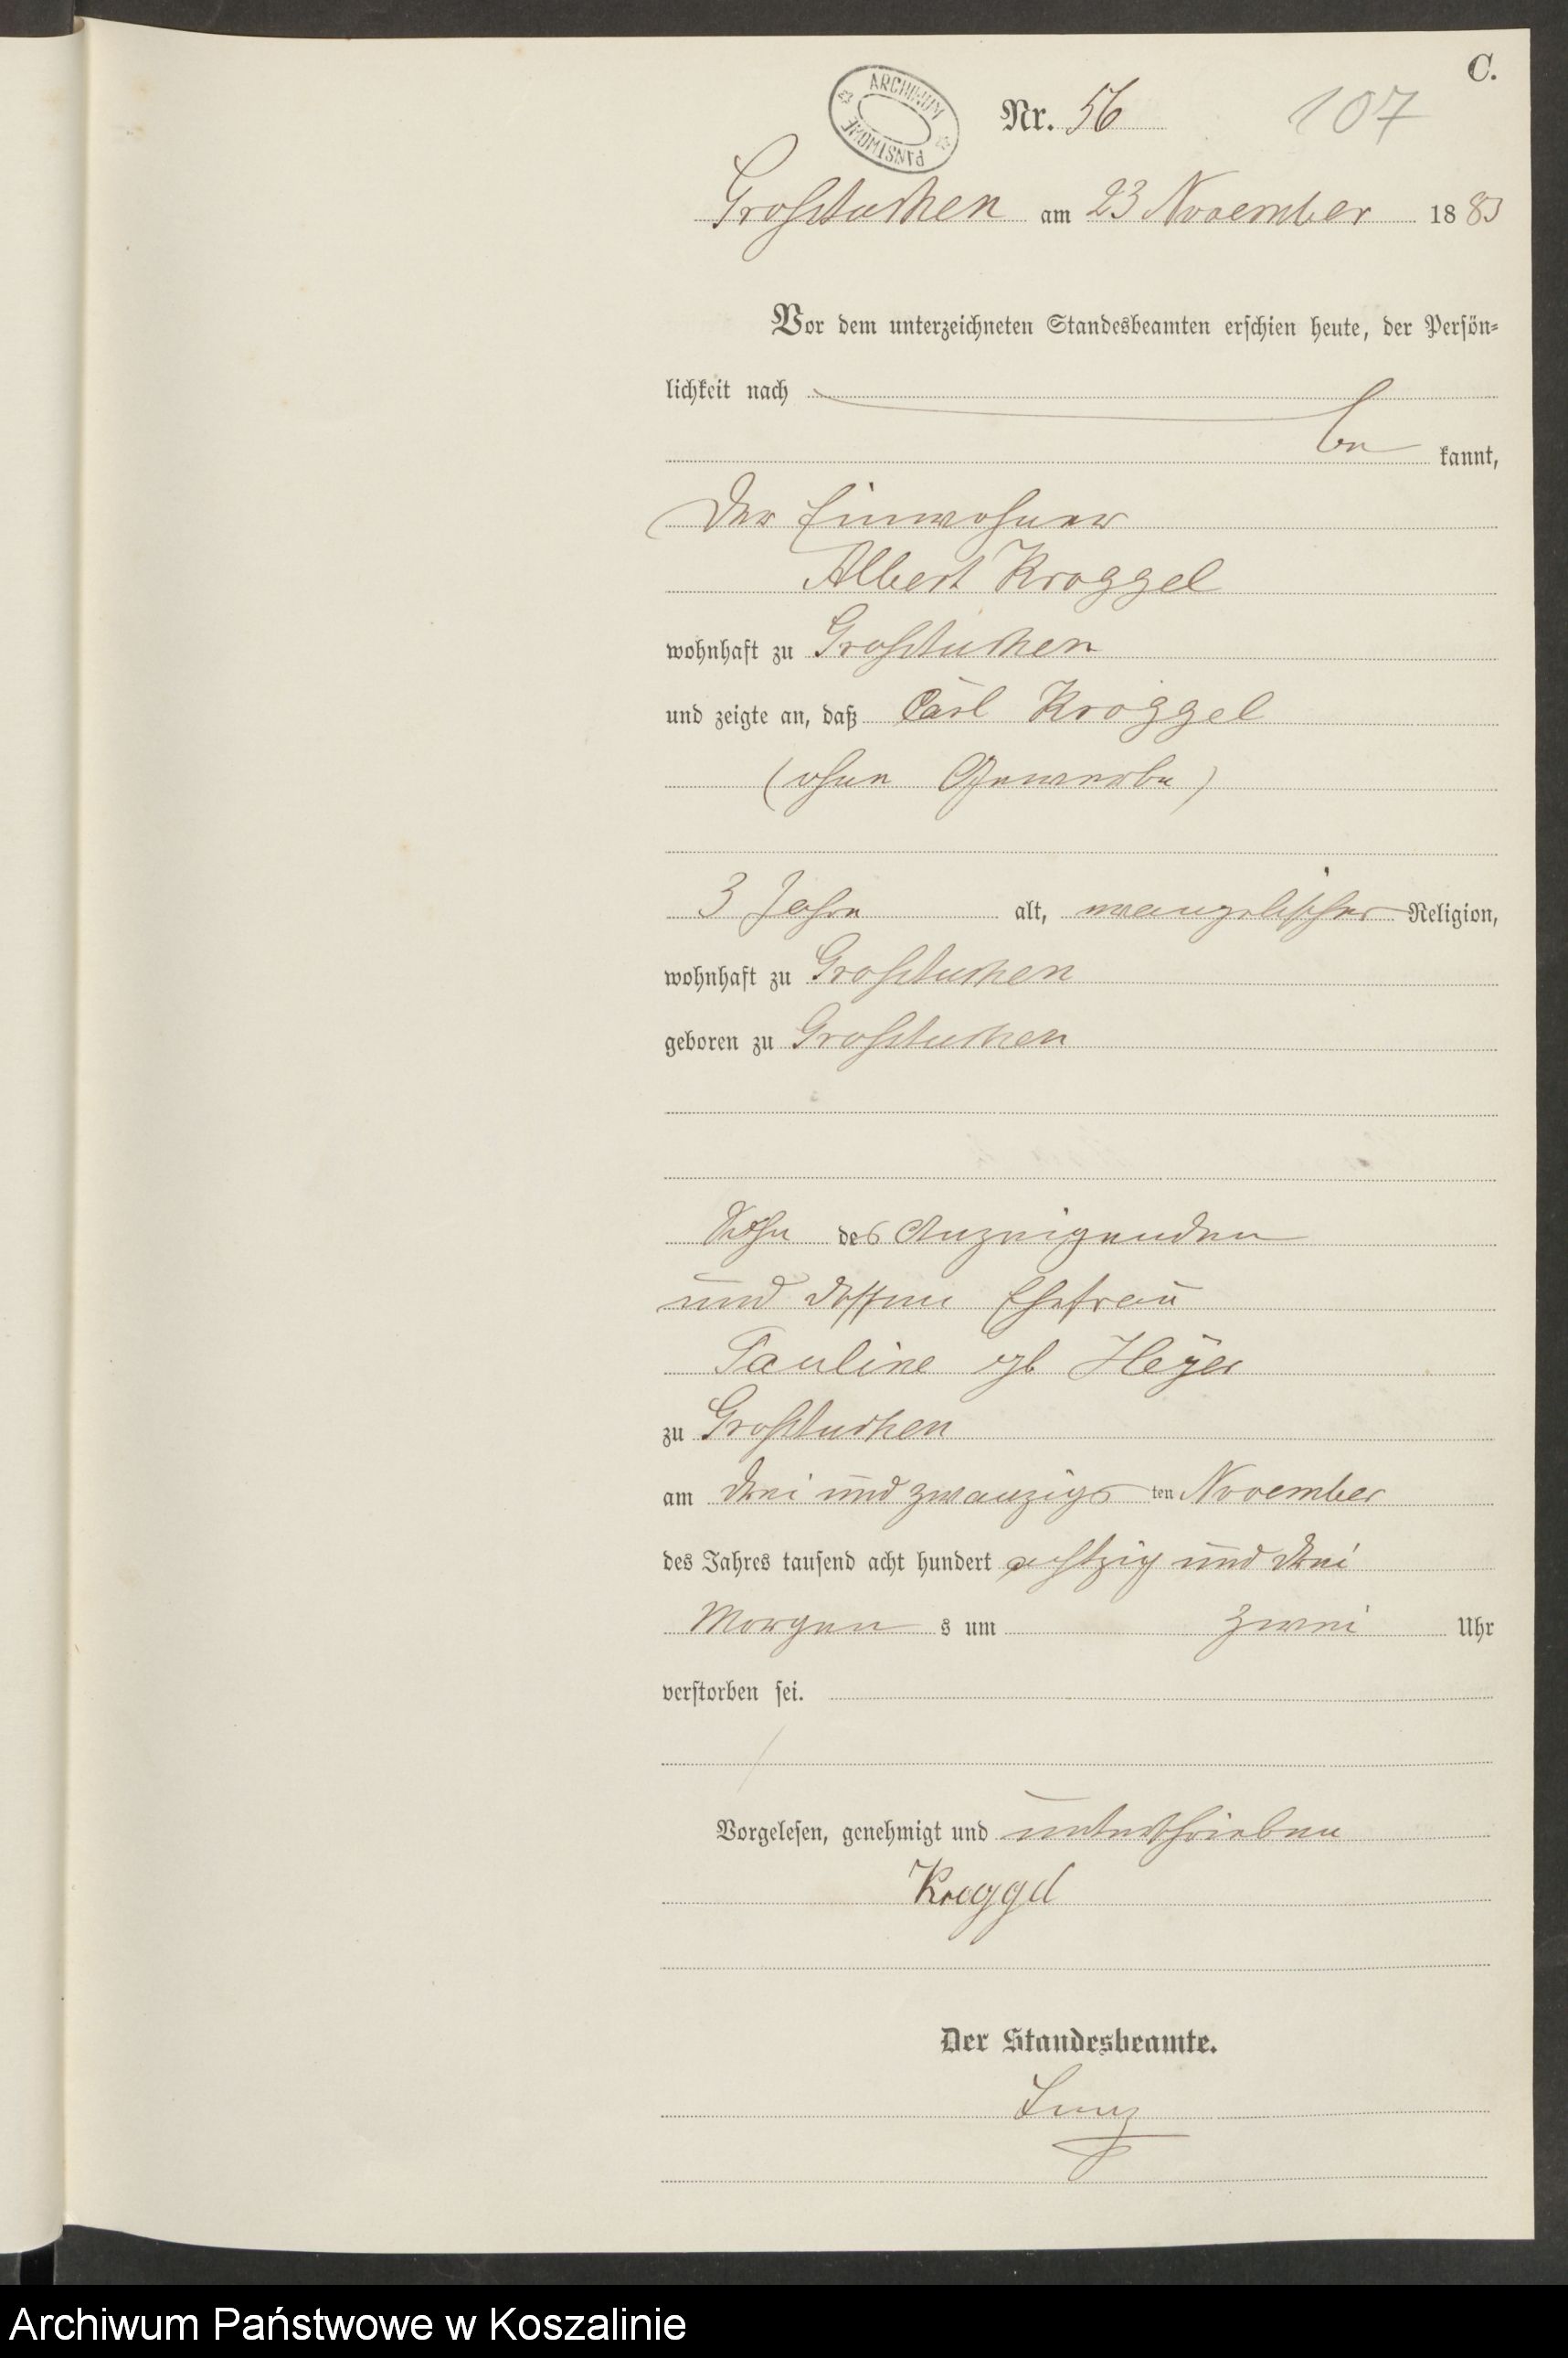 C.
ARCHIWUM PAŃSTWOWE
Nr. 56
107
Großtuchen am 23 November 1883
Vor dem unterzeichneten Standesbeamten erschien heute, der Persön-
lichkeit nach
be kannt,
der Einwohner
Albert Kroggel
wohnhaft zu Großtuchen
und zeigte an, daß Carl Kroggel
(ohne Gewerbe)
3 Jahre alt, evangelischer Religion,
wohnhaft zu Großtuchen
geboren zu Großtuchen
Sohn des Anzeigenden
und dessen Ehefrau
Pauline geb Heyer
zu Großtuchen
am drei und zwanzigsten November
des Jahres tausend acht hundert achtzig und drei
Morgen s um zwei Uhr
verstorben sei.
Vorgelesen, genehmigt und unterschrieben
Kroggel
Der Standesbeamte.
Archiwum Państwowe w Koszalinie